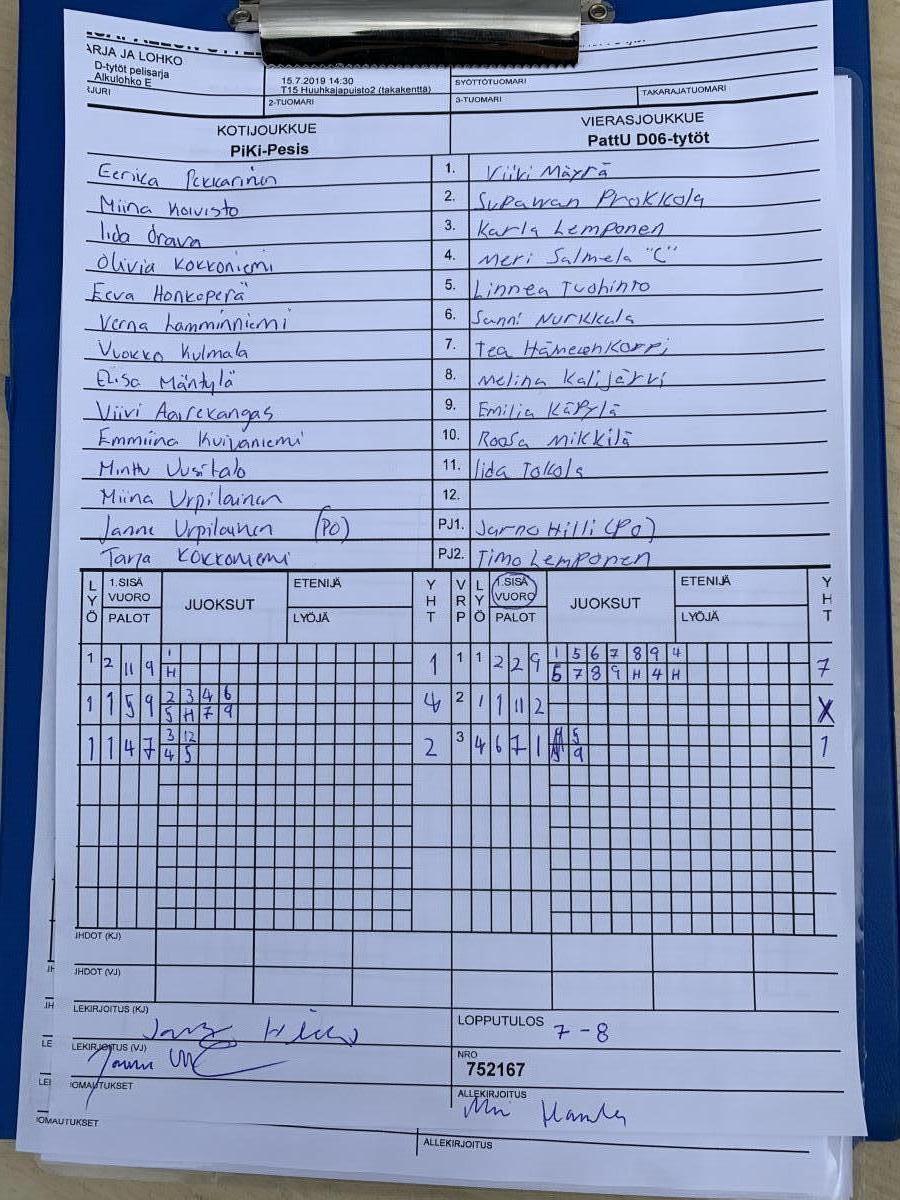 ARJA JA LOHKO
D-tytöt pelisarja
Alkulohko E
15.7.2019 14:30
T15 Huuhkajapuisto2 (takakenttä)
SYÖTTÖTUOMARI
RJURI 2-TUOMARI 3-TUOMARI TAKARAJATUOMARI
KOTIJOUKKUE VIERASJOUKKUE
PiKi-Pesis PattU D06-tytöt
Eerika Pekkarinen 1. Viivi Mäyrä
Miina Koivisto 2. Supawan Prokkola
Iida Orava 3. Karla Lemponen
Olivia Kokkoniemi 4. Meri Salmela "C"
Eeva Honkoperä 5. Linnea Tuohinto
Verna Lamminniemi 6. Sanni Nurkkala
Vuokko Kulmala 7. Tea Hämeenkorpi
Elisa Mäntylä 8. Melina Kalijärvi
Viivi Aarrekangas 9. Emilia Käpylä
Emmiina Kuivaniemi 10. Roosa Mikkilä
Minttu Uusitalo 11. Iida Tolkola
Miina Urpilainen 12.
Janne Urpilainen (PO) PJ1. Jarno Hilli (PO)
Tarja Kokkoniemi PJ2. Timo Lemponen
LYÖ 1.SISÄ VUORO PALOT JUOKSUT ETENIJÄ LYÖJÄ YHT VRP LYÖ 1.SISÄ VUORO PALOT JUOKSUT ETENIJÄ LYÖJÄ YHT
1 2 11 9 1 1 1 1 2 2 9 1 5 6 7 8 9 4 7
H 5 7 8 9 H 4 H
1 1 5 9 2 3 4 6 4 2 1 1 11 2 X
5 H 7 9
1 1 4 7 3 12 2 3 4 6 7 1 5 1
4 5 9
JHDOT (KJ)
JHDOT (VJ)
LEKIRJOITUS (KJ) LOPPUTULOS 7-8
LEKIRJOITUS (VJ) NRO
752167
OMAUTUKSET ALLEKIRJOITUS
IOMAUTUKSET ALLEKIRJOITUS